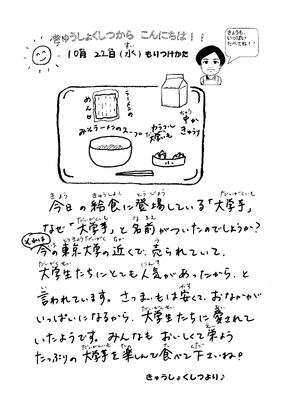 きゅうしょくしつから こんにちは！！
10月 22日(水)もりつけかた
きょうも、
いっぱい
たべてね！！
ラーメンの
めん
みそラーメンのスープ
大学いも
ぎゅうにゅう
今日の給食に登場している「大学芋」
なぜ「大学芋」と名前がついたのでしょうか？
今の東京大学の近くで、売られていて、
大学生たちにとても人気があったから、と
言われています。さつまいもは安くて、おなかが
いっぱいになるから、大学生たちに愛されて
いたようです。みんなも おいしくて栄よう
たっぷりの大学芋を楽しんで食べて下さいね。
きゅうしょくしつより♪